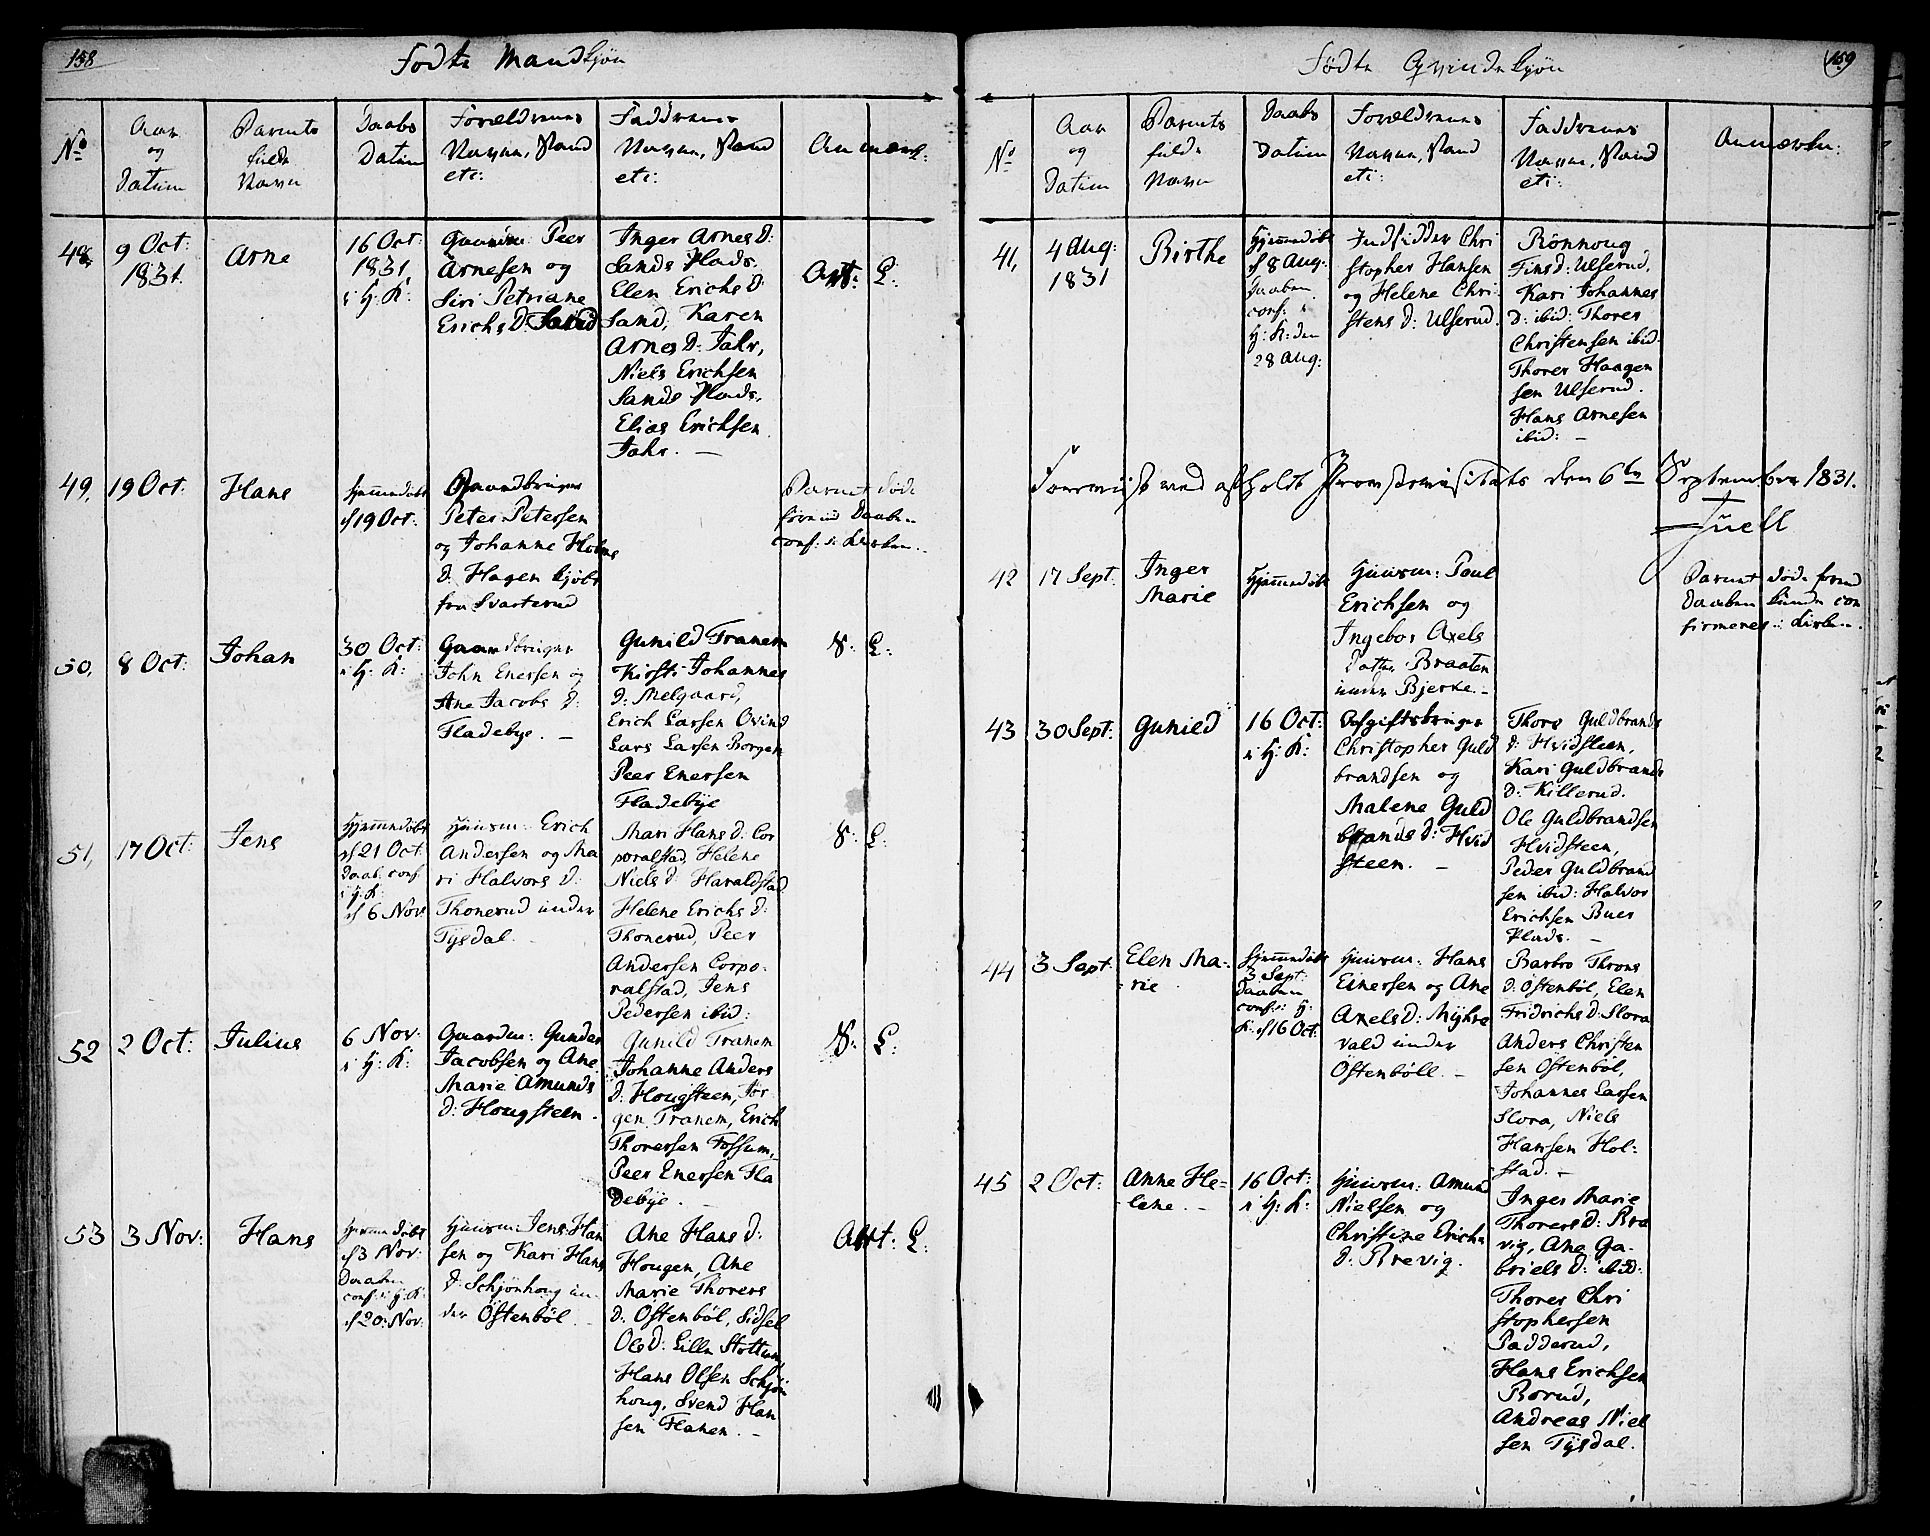 158
Fødte Mandkjøn
No
Aar
og
Datum
Barnets
fulde
Navn
Daabs
Datum
Forældrenes
Navne, Stand
etc:
Faddrenes
Navne, Stand
etc:
Anmærk:
48,
9 Oct:
1831.
Arne
16 Oct:
1831
i H: K:
Gaardm: Peer
Arnesen og
Siri Petriane
Erichs D: Sand
Inger Arnes D:
Sands Plads.
Elen Erichs D:
Sand, Karen
Arnes D: Jahr,
Niels Erichsen
Sands Plads,
Elias Erichsen
Jahr. —
Art: L:
49,
19 Oct:
Hans
Hjemmedøbt
d 19 Oct:
Gaardbruger
Peter Petersen
og Johanne Holms
D: Hagen kjøbt
fra Svarterud
Barnet døde
førend Daaben
conf: i Kirken.
50,
8 Oct:
Johan
30 Oct:
i H: K:
Gaardbruger
John Enersen og
Ane Jacobs D:
Fladebye. —
Gunild Tranem
Kirsti Johannes
D: Melgaard,
Erich Larsen Ovind
Lars Larsen Borgen
Peer Enersen
Fladebye
N: L:
51,
17 Oct:
Jens
Hjemmedøbt
d 21 Oct:
Daab. conf
i H: K:
d 6 Nov:
Huusm: Erich
Andersen og Ma
ri Halvors D:
Thonerud under
Tysdal. -
Mari Hans D: Cor
poralstad, Helene
Niels D: Haraldstad
Helene Erichs D:
Thonerud, Peer
Andersen Corpo-
ralstad, Jens
Pedersen ibid:
N: L:
52
2 Oct:
Julius
6 Nov:
i H: K:
Gaardm: Gunder
Jacobsen og Ane
Marie Amunds
D: Hougsteen.
Gunild Tranem
Johanne Anders
D: Hougsteen, Jør
gen Tranem, Erich
Thoresen Fossum,
Peer Enersen Fla
debye. -
N: L:
53
3 Nov:
Hans
Hjemmedøbt
d 3 Nov:
Daaben
conf: i H: K:
d 20: Nov:
Huusm: Jens Han
sen og Kari Hans
D: Schjønhoug un-
der Østenbøl. -
Ane Hans D:
Hougen, Ane
Marie Thorers
D: Østenbøl, Sidsel
Ols D: Lille Stottum
Hans Olsen Schjøn
houg, Svend Han
sen Flanen. —
Att: L:
159
Fødte Qvindekjøn
No
Aar
og
Datum
Barnets
fulde
Navn
Daabs
Datum
Forældrenes
Navne, Stand
etc:
Faddrenes
Navne, Stand
etc:
Anmærkn:
41,
4 Aug:
1831
Birthe
Hjemmedøbt
d 8 Aug:
Daaben
conf: i
H: K: den
28 Aug:
Indsidder Chri
stopher Hansen
og Helene Chri
stens D: Ulserud.
Rönnoug
Fins D: Ulserud.
Kari Johannes
D: ibid: Thorer
Christensen ibid.
Thorer Haagen
sen Ulserud.
Hans Arnesen
ibid: —
Foreviist ved afholdt Provstevisitats den 6te September 1831.
Juell
42
17 Sept:
Inger
Marie
Hjemmedøbt
Huusm: Poul
Erichsen og
Ingebor Axels
Datter Braaten
under Bjerke. -
Barnet døde førend
Daaben kunde con
firmeres i Kirken.
43
30 Sept:
Gunild
16 Oct:
i H: K:
Afgiftsbruger
Christopher Guld
brandsen og
Malene Guld
brands D: Hvid
steen. —
Thore Guldbrands
D: Hvidsteen,
Kari Guldbrands
D: Killerud.
Ole Guldbrandsen
Hvidsteen,
Peder Guldbrand
sen ibid: Halvor
Erichsen Buer
Plads. —
44
3 Sept:
Elen Ma-
rie
Hjemmedøbt
3 Sept:
Daaben
conf: i H:
K: d 16 Oct:
Huusm: Hans
Einersen og Ane
Axels D: Myhre
vald under
Østenbøll. —
Barbro Throns
D: Østenböl, Elen
Fridrichs D: Slora
Anders Christen
sen Østenbøl,
Johannes Larsen
Slora, Niels
Hansen Hol-
stad. —
45
2 Oct:
Anne He-
lene. -
16 Oct:
i H: K:
Huusm: Amund
Nielsen og
Christine Erichs
D: Brevig.
Inger Marie
Thorers D: Bra
vig, Ane Ga-
briels D: ibid:
Thorer Chri
stophersen
Padderud,
Hans Erichsen
Borud,
Andreas Niel
sen Tysdal.